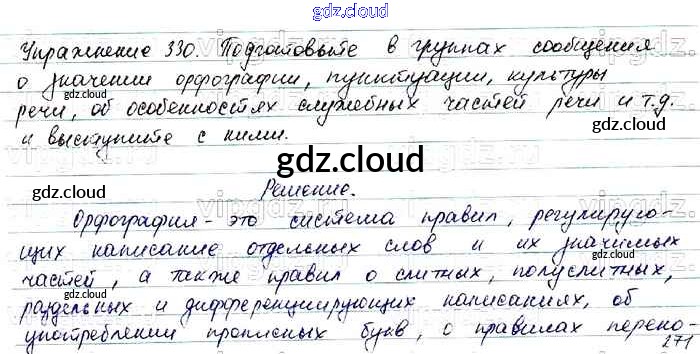 gdz.cloud
Упражнение 330. Подготовьте в группах сообщения
о значении орфографии, пунктуации, культуры
gdz.cloud gdz.cloud
речи, об особенностях служебных частей речи и т.д.
и выступите с ними.
gdz.cloud
gdz.cloud gdz.cloud
Решение.
Орфография - это система правил, регулирую-
щих написание отдельных слов и их значимых
частей, а также правил о слитных, полуслитных,
gdz.cloud gdz.cloud
раздельных и дифференцирующих написаниях, об
употреблении прописных букв, о правилах перено-
gdz.cloud
271